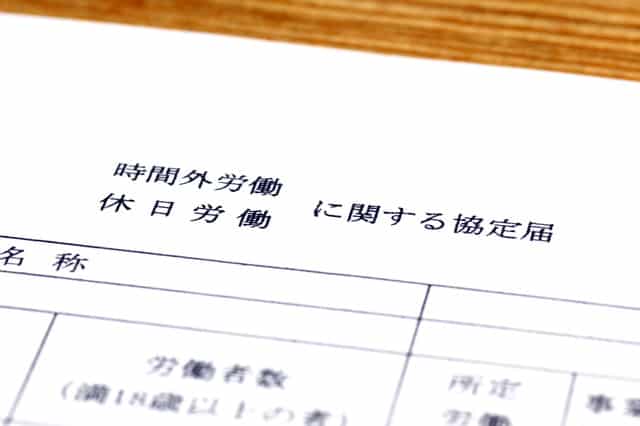 時間外労働
休日労働 に関する協定届
名称
労働者数
(満18歳以上の者)
所定
労働
事業